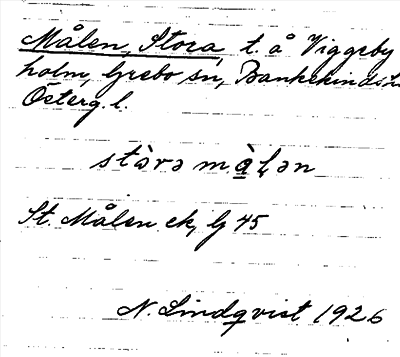 Målen, Stora, t. å Viggeby
holm, Grebo sn, Bankekinds h.
Österg. l.
stòrə mὰlən
St. Målen ek, G 45
N. Lindqvist 1926